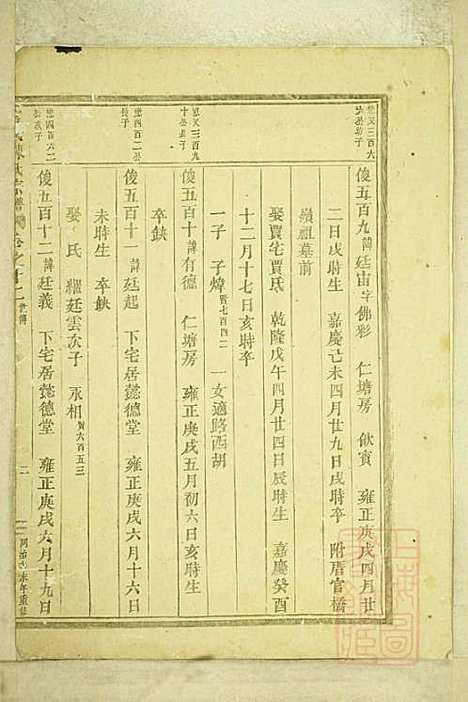 俊五百九 諱 廷宙 字 佛彩 仁塘房 飲賓 雍正庚戌四月廿
二日戌時生 嘉慶己未四月廿九日戌時卒 附厝官橋
嶺祖墓前
娶賈宅賈氏 乾隆戊午四月廿四日辰時生 嘉慶癸酉
十二月十七日亥時卒
一子 子煒 賢七百四二 一女適路西胡
俊五百十 諱 有德 仁塘房 雍正庚戌五月初六日亥時生
卒缺
俊五百十一 諱 廷起 下宅居懿德堂 雍正庚戌六月十六日
未時生 卒缺
娶 氏 繼廷雲次子 永相 賢六百五三
俊五百十二 諱 廷義 下宅居懿德堂 雍正庚戌六月十九日